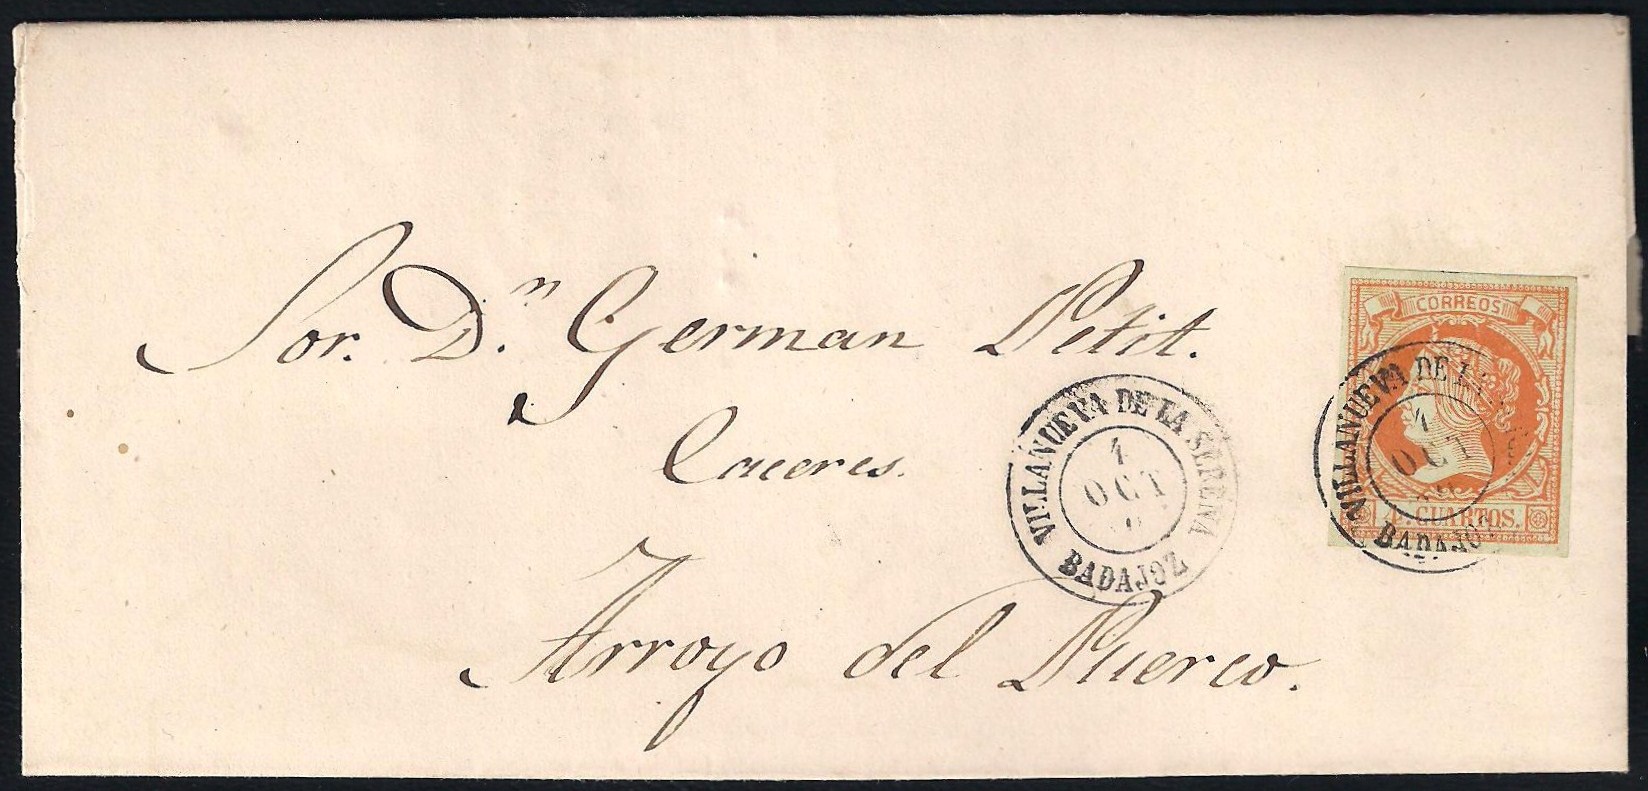 Sor. D.n German Petit.
Caceres.
Arroyo del Puerco.
VILLANUEVA DE LA SERENA
OCT
BADAJOZ
CORREOS
VILLANUEVA DE LA
OCT
BADAJOZ
4. CUARTOS.